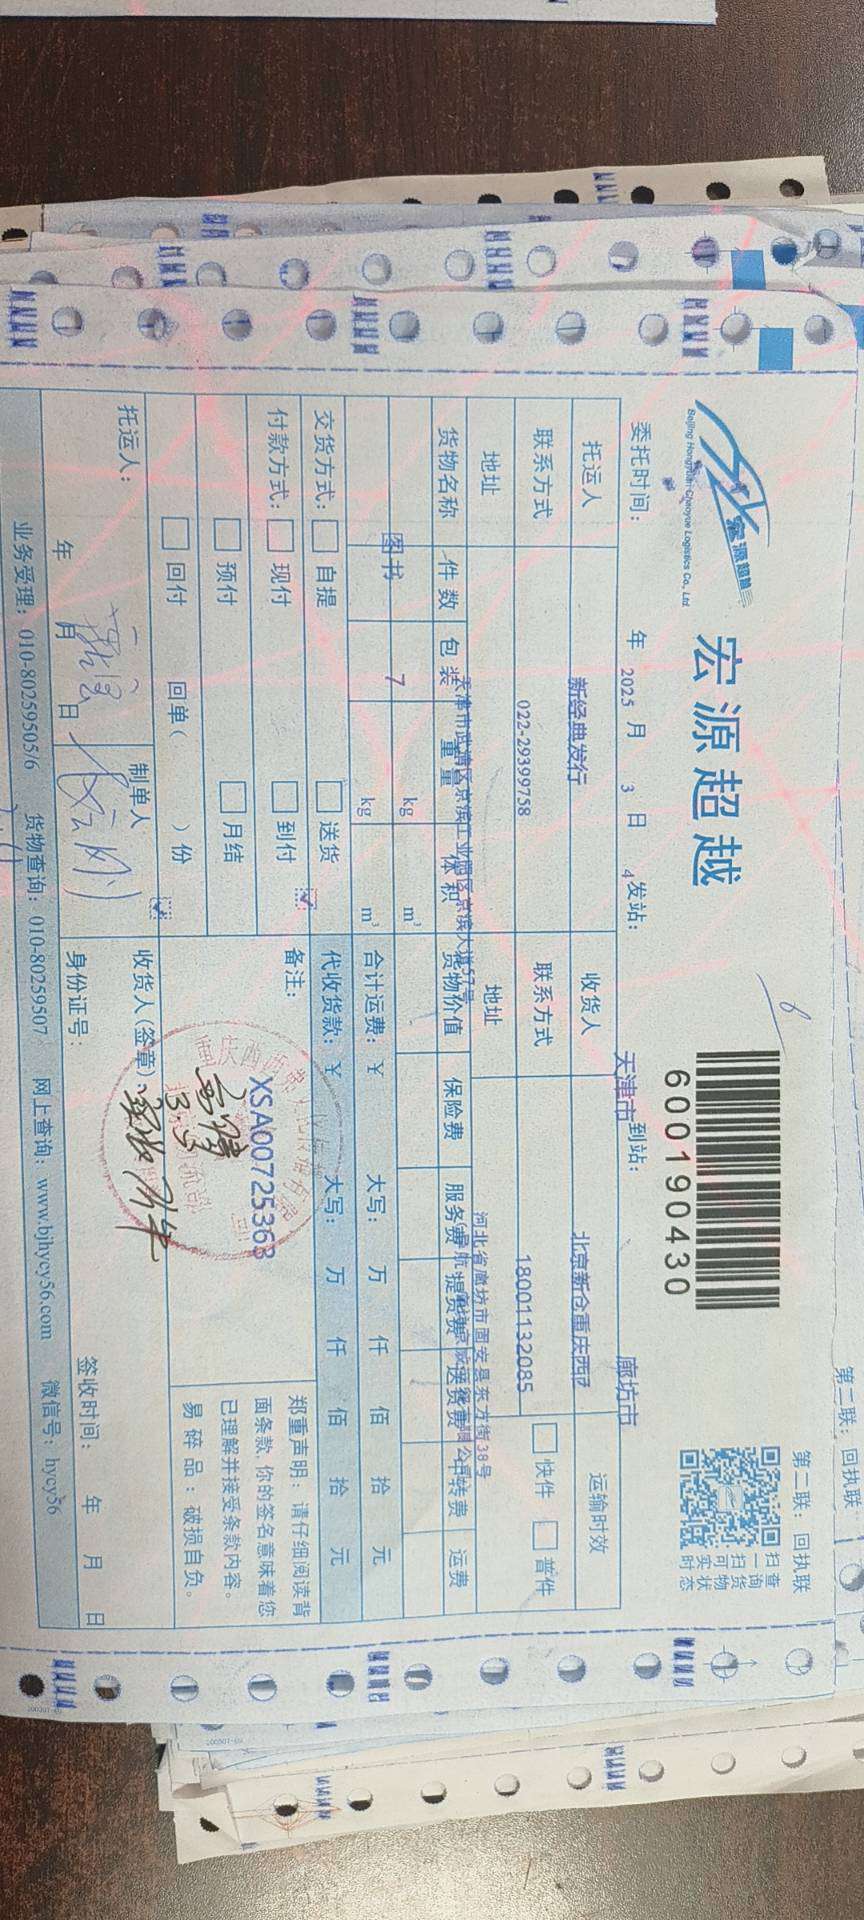 第二联：回执联
第二联：回执联
宏源超越
Beijing Hongyuan Chaoyue Logistics Co., Ltd.
宏源超越
6000190430
扫一扫可实时
查询货物状态
委托时间： 年 2025 月 3 日 4 发站： 天津市 到站： 廊坊市
托运人 新经典发行 收货人 北京新仓重庆西西 运输时效
联系方式 022-29399758 联系方式 18001132085 快件 普件
地址 天津市武清区京滨工业园区京滨大道57号 地址 河北省廊坊市固安县东方街38号
货物名称 件数 包装 重量 体积 货物价值 保险费 服务费 提货费 送货费 中转费 运费
图书 7 kg m³
kg m³ 合计运费：￥ 大写： 万 仟 佰 拾 元
交货方式： 自提 送货 代收货款：￥ 大写： 万 仟 佰 拾 元
付款方式： 现付 到付 备注：
预付 月结 XSA00725363
回付 回单（ ）份
郑重声明：请仔细阅读背
面条款，你的签名意味着您
已理解并接受条款内容。
易碎品：破损自负。
托运人： 制单人 收货人（签章）：
3.5
年 月 日 身份证号： 签收时间： 年 月 日
业务受理：010-80259505/6 货物查询：010-80259507 网上查询：www.bjhycy56.com 微信号：hycy56